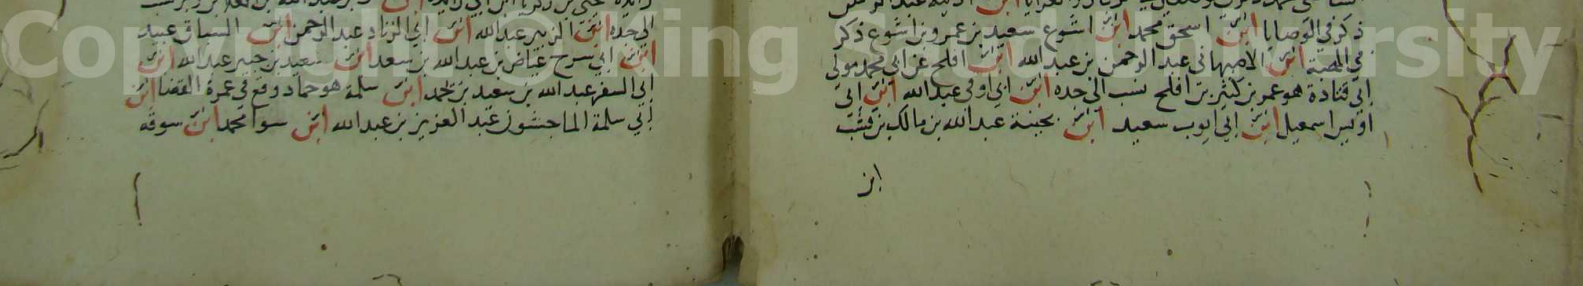 ذكر في الوصايا ابن اسحق محمد ابن اشوع سعيد بن عمرو بن اشوع ذكر
في الهبة ابن الاصبهاني عبد الرحمن بن عبد الله ابن افلح عن ابي محمد مولى
ابي قتادة هو عمر بن كثير بن افلح نسب الى جده ابن ابي اوفى عبد الله ابن ابي
اويس اسمعيل ابن ابي ايوب سعيد ابن بحينة عبد الله بن مالك بن قشب
ابن
الى جده ابن الزبير عبد الله ابن ابي الزناد عبد الرحمن ابن السباق عبيد
ابن ابي سرح عياض بن عبد الله بن سعد ابن سعيد بن جبير عبد الله ابن
ابي السفر عبد الله بن سعيد بن محمد ابن سلمة هو حماد وقع في عمرة القضا ابن
ابي سلمة الماجشون عبد العزيز بن عبد الله ابن سوا محمد ابن سوقه
Copyright © King Saud University